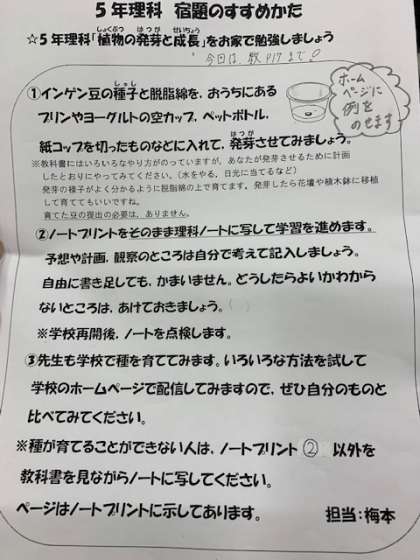 5年理科 宿題のすすめかた
しょくぶつ はつが せいちょう
☆5年理科「植物の発芽と成長」をお家で勉強しましょう
今日は、教P17まで!
しゅし
①インゲン豆の種子と脱脂綿を、おうちにある
プリンやヨーグルトの空カップ、ペットボトル、
はつが
紙コップを切ったものなどに入れて、発芽させてみましょう。
ホーム
ページに
例を
のせます
※教科書にはいろいろなやり方がのっていますが、あなたが発芽させるために計画
したとおりにやってみてください。(水をやる、日光に当てるなど)
発芽の様子がよく分かるように脱脂綿の上で育てます。発芽したら花壇や植木鉢に移植
して育ててもいいですね。
育てた豆の提出の必要は、ありません。
②ノートプリントをそのまま理科ノートに写して学習を進めます。
予想や計画、観察のところは自分で考えて記入しましょう。
自由に書き足しても、かまいません。どうしたらよいかわから
ないところは、あけておきましょう。
※学校再開後、ノートを点検します。
③先生も学校で種を育ててみます。いろいろな方法を試して
学校のホームページで配信してみますので、ぜひ自分のものと
比べてみてください。
※種が育てることができない人は、ノートプリント ② 以外を
教科書を見ながらノートに写してください。
ページはノートプリントに示してあります。 担当:梅本